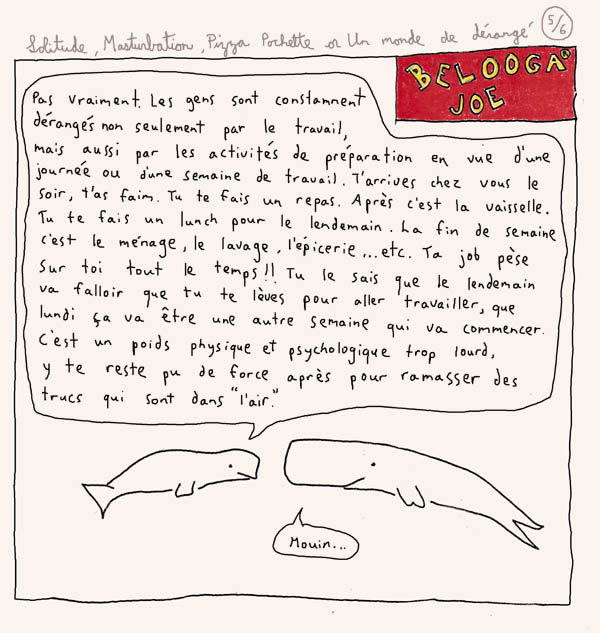 Solitude, Masturbation, Pizza Pochette or Un monde de dérangé
5/6
BELOOGA®
JOE
Pas vraiment. Les gens sont constamment
dérangés non seulement par le travail,
mais aussi par les activités de préparation en vue d'une
journée ou d'une semaine de travail. T'arrives chez vous le
soir, t'as faim. Tu te fais un repas. Après c'est la vaisselle.
Tu te fais un lunch pour le lendemain. La fin de semaine
c'est le ménage, le lavage, l'épicerie,..etc. Ta job pèse
sur toi tout le temps!! Tu le sais que le lendemain
va falloir que tu te lèves pour aller travailler, que
lundi ça va être une autre semaine qui va commencer.
C'est un poids physique et psychologique trop lourd,
y te reste pu de force après pour ramasser des
trucs qui sont dans "l'air."
Mouin...